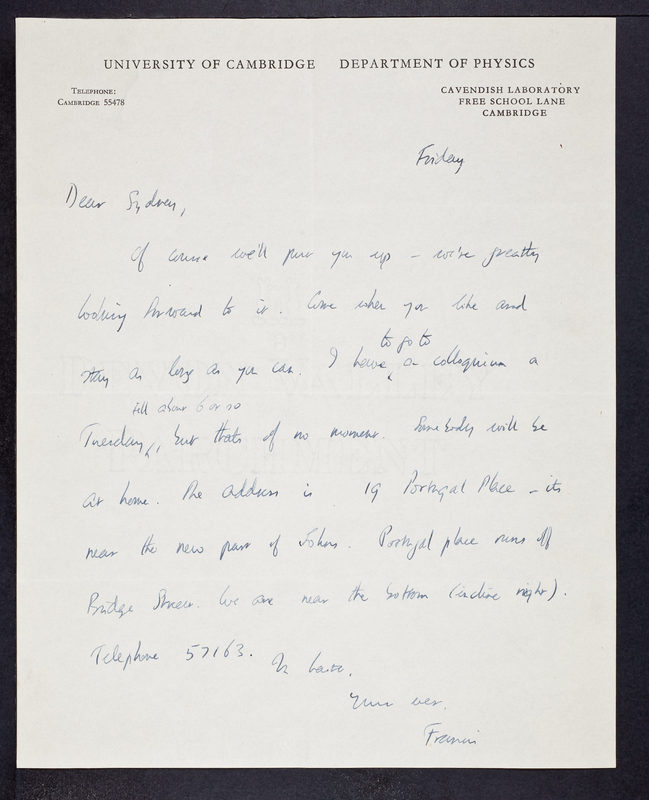 UNIVERSITY OF CAMBRIDGE DEPARTMENT OF PHYSICS
TELEPHONE:
CAMBRIDGE 55478
CAVENDISH LABORATORY
FREE SCHOOL LANE
CAMBRIDGE
Friday
Dear Sydney,
Of course we'll put you up – we're greatly
looking forward to it. Come when you like and
stay as long as you can. I have to go to a colloquium on
Tuesday till about 6 or so, but thats of no moment. Somebody will be
at home. The address is 19 Portugal Place – its
near the new part of Johns. Portugal place runs off
Bridge Street. We are near the bottom (incline right).
Telephone 57163.
In haste.
Yours ever.
Francis